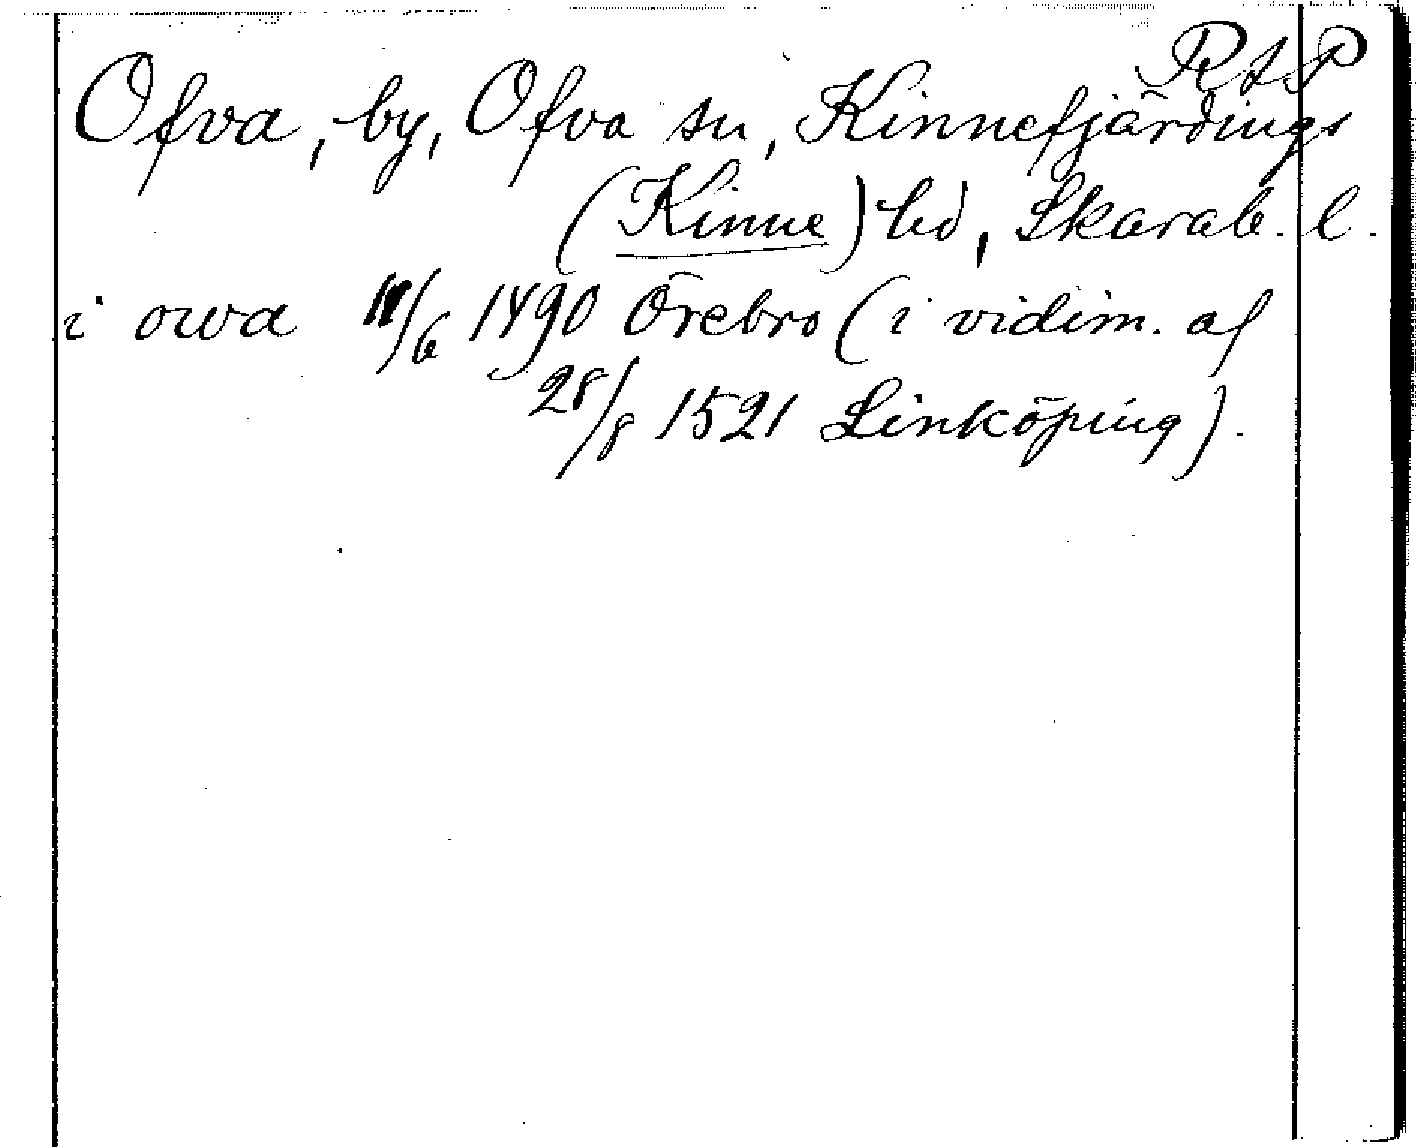 RAP
Ofva, by, Ofva sn, Kinnefjärdings
(Kinne) hd, Skarab. l.
i owa 11/6 1490 Örebro (i vidim. af
28/8 1521 Linköping).